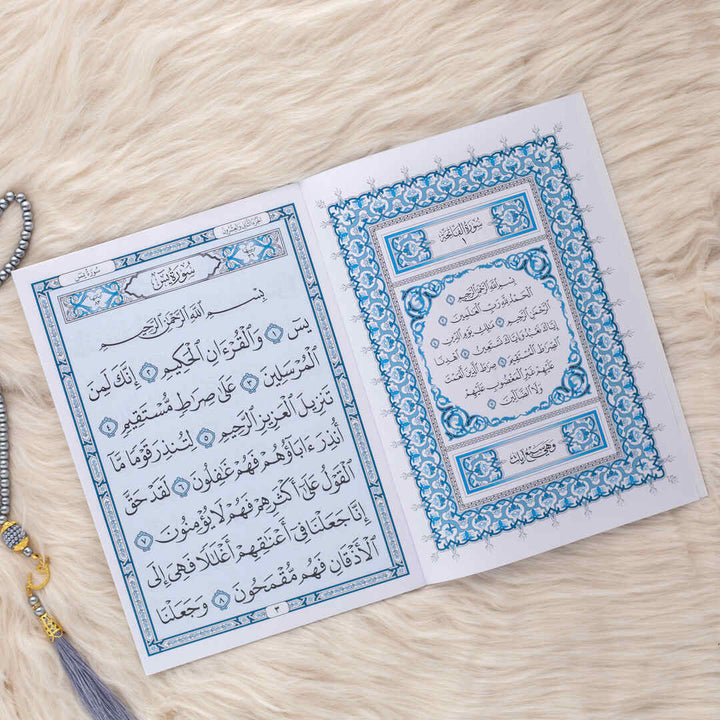 سُورَةُ الفَاتِحَةِ
١
بِسْمِ ٱللَّهِ ٱلرَّحْمَٰنِ ٱلرَّحِيمِ ١
ٱلْحَمْدُ لِلَّهِ رَبِّ ٱلْعَٰلَمِينَ ٢
ٱلرَّحْمَٰنِ ٱلرَّحِيمِ ٣ مَٰلِكِ يَوْمِ ٱلدِّينِ ٤
إِيَّاكَ نَعْبُدُ وَإِيَّاكَ نَسْتَعِينُ ٥ ٱهْدِنَا
ٱلصِّرَٰطَ ٱلْمُسْتَقِيمَ ٦ صِرَٰطَ ٱلَّذِينَ أَنْعَمْتَ
عَلَيْهِمْ غَيْرِ ٱلْمَغْضُوبِ عَلَيْهِمْ
وَلَا ٱلضَّآلِّينَ ٧
وَهِيَ سَبْعُ
الجزء الثاني والعشرون
سُورَة يسٓ
سُورَةُ يسٓ
بِسْمِ ٱللَّهِ ٱلرَّحْمَٰنِ ٱلرَّحِيمِ
يسٓ ١ وَٱلْقُرْءَانِ ٱلْحَكِيمِ ٢ إِنَّكَ لَمِنَ
ٱلْمُرْسَلِينَ ٣ عَلَىٰ صِرَٰطٍ مُّسْتَقِيمٍ ٤
تَنزِيلَ ٱلْعَزِيزِ ٱلرَّحِيمِ ٥ لِتُنذِرَ قَوْمًا مَّآ
أُنذِرَ ءَابَآؤُهُمْ فَهُمْ غَٰفِلُونَ ٦ لَقَدْ حَقَّ
ٱلْقَوْلُ عَلَىٰٓ أَكْثَرِهِمْ فَهُمْ لَا يُؤْمِنُونَ ٧
إِنَّا جَعَلْنَا فِىٓ أَعْنَٰقِهِمْ أَغْلَٰلًا فَهِىَ إِلَى
ٱلْأَذْقَانِ فَهُم مُّقْمَحُونَ ٨ وَجَعَلْنَا
٣